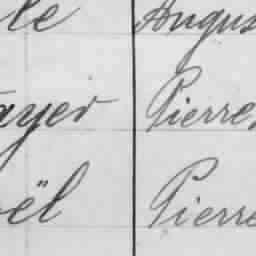 le Angus
ayer Pierre,
oël Pierre